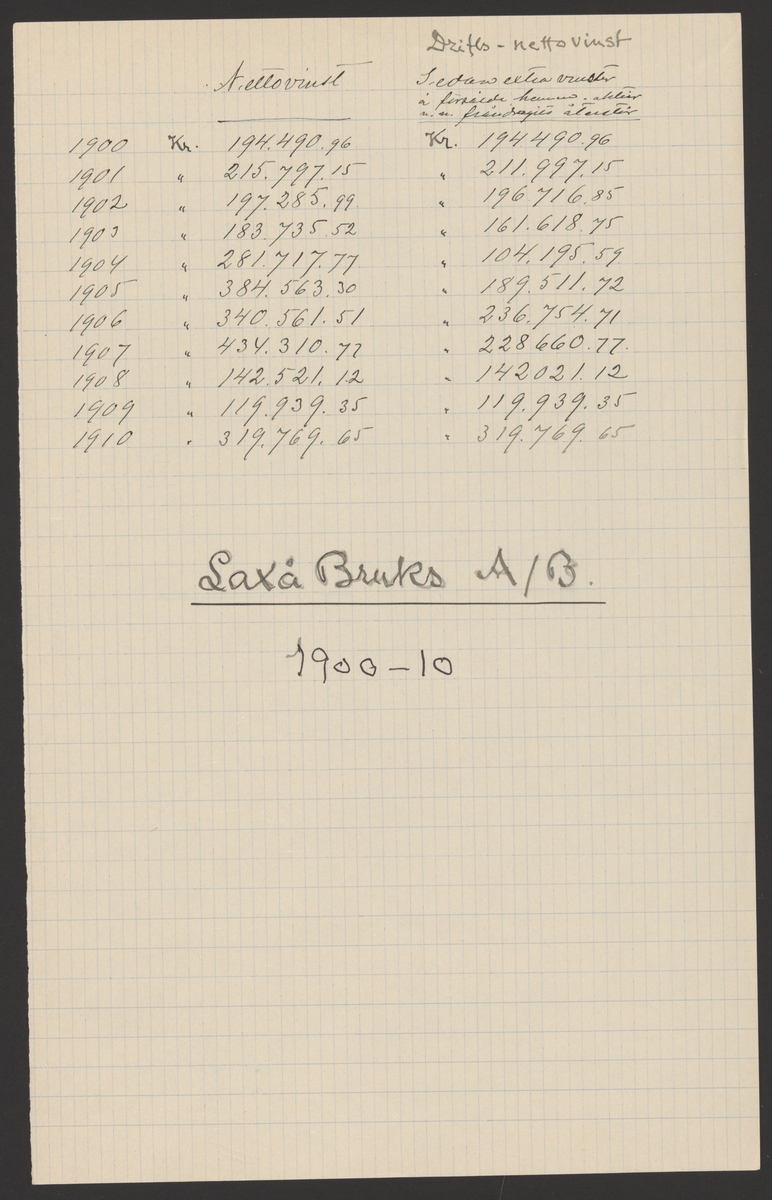 Drifts-nettovinst
Nettovinst Sedan extra vinster
å försålda hemm. aktier
m.m. fråndragits återstår
1900 Kr. 194.490.96 Kr. 194490.96
1901 " 215.797.15 " 211.997.15
1902 " 197.285.99 " 196716.85
1903 " 183.735.52 " 161.618.75
1904 " 281.717.77 " 104.195.59
1905 " 384.563.30 " 189.511.72
1906 " 340.561.51 " 236.754.71
1907 " 434.310.77 " 228660.77.
1908 " 142.521.12 " 142021.12
1909 " 119.939.35 " 119.939.35
1910 " 319.769.65 " 319.769.65
Laxå Bruks A/B.
1900-10